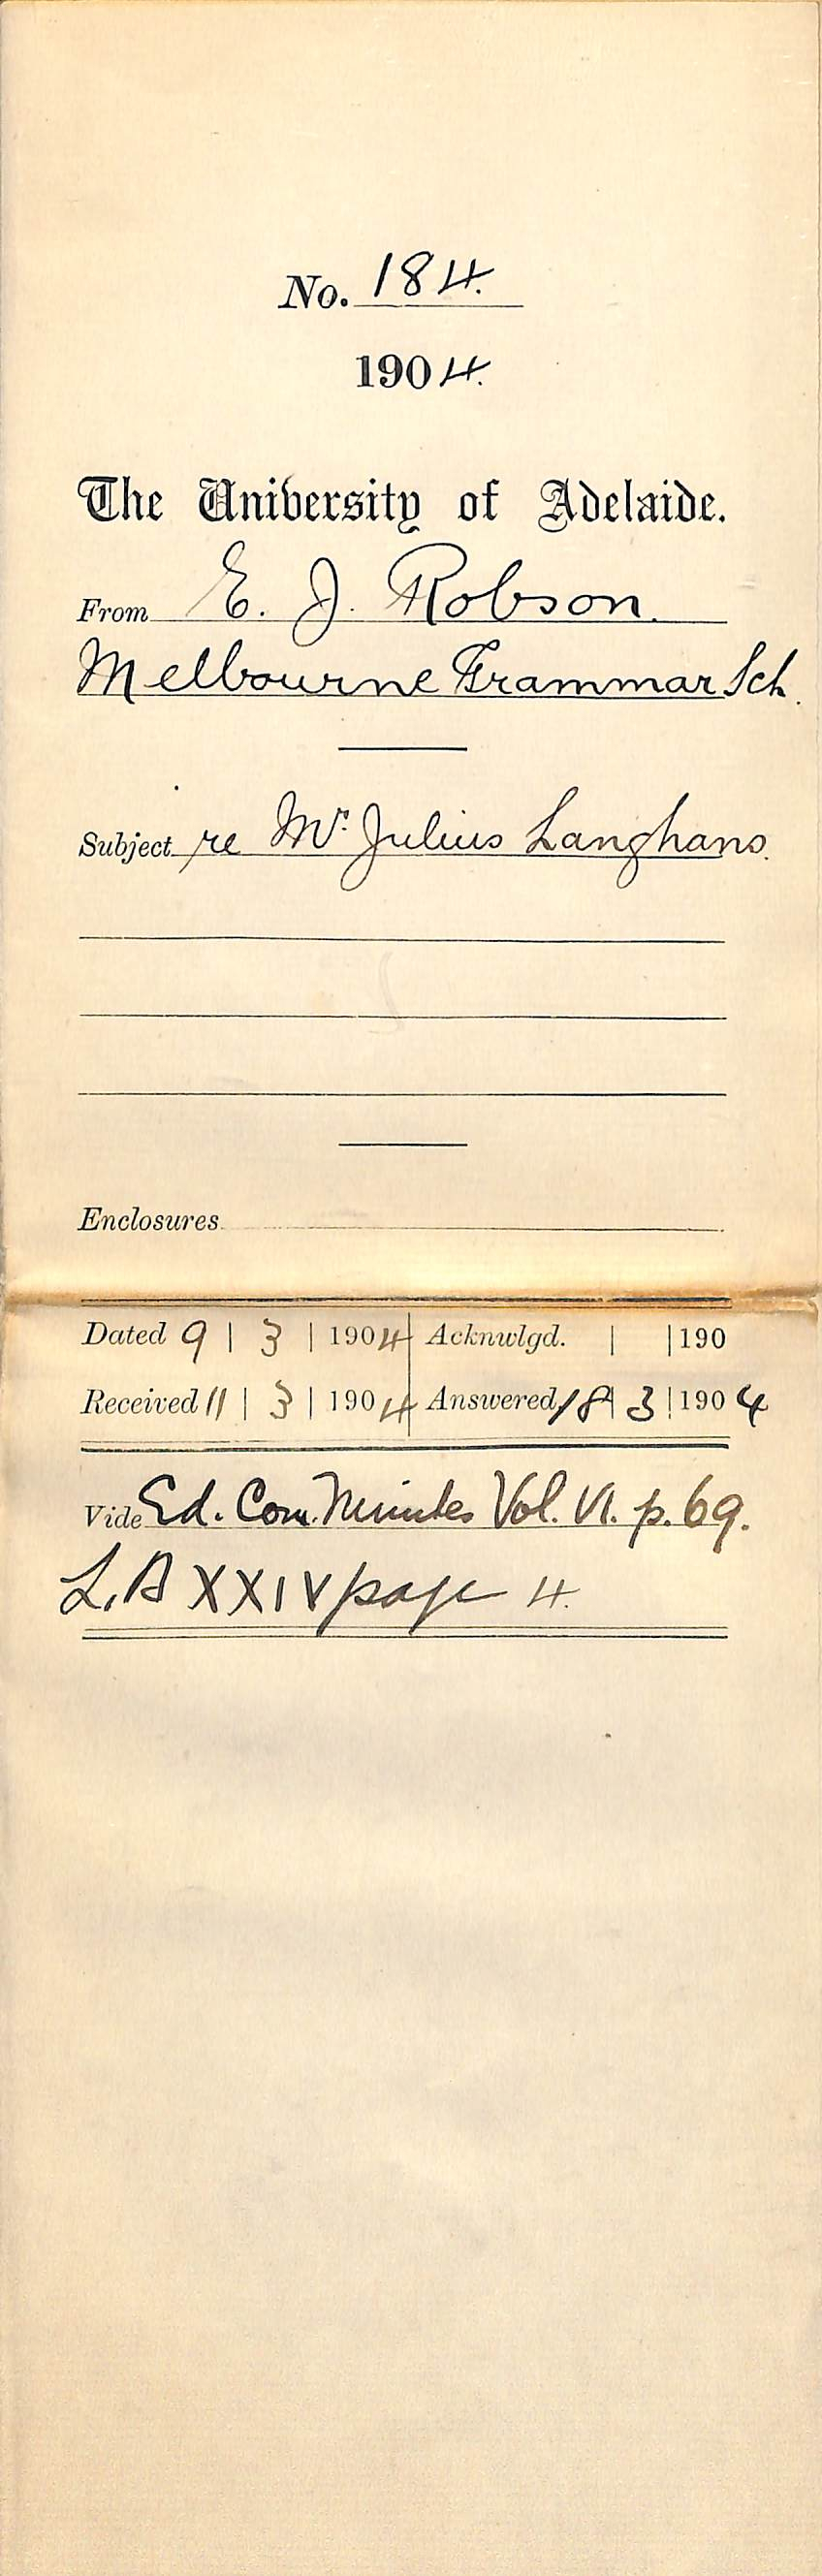 No. 184.
1904.
The University of Adelaide.
From E. J. Robson.
Melbourne Grammar Sch.
Subject re Mr. Julius Langhans.
Enclosures
Dated 9 | 3 | 1904 Acknwlgd. | | 190
Received 11 | 3 | 1904 Answered 18 | 3 | 1904
Vide Ed. Com. Minutes Vol. VI. p. 69.
L.B XXIV page 4.